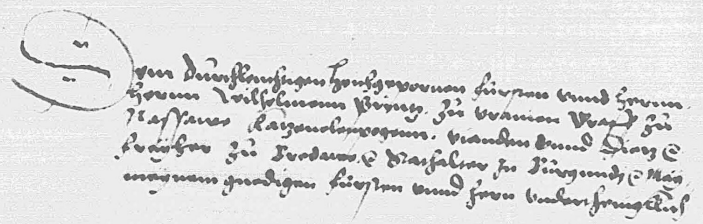 Dem durchleuchtigen hochgepornen fürsten vnnd herrnn
herrnn Wilhelmenn Printz zu Vranien Graff zu
Nassawe Katzenelenpogenn, Vianden vnnd Dietz &
freyher zu Bredaw & Stathalter In Burgundj &
meynem gnedigen fürsten vnnd hern